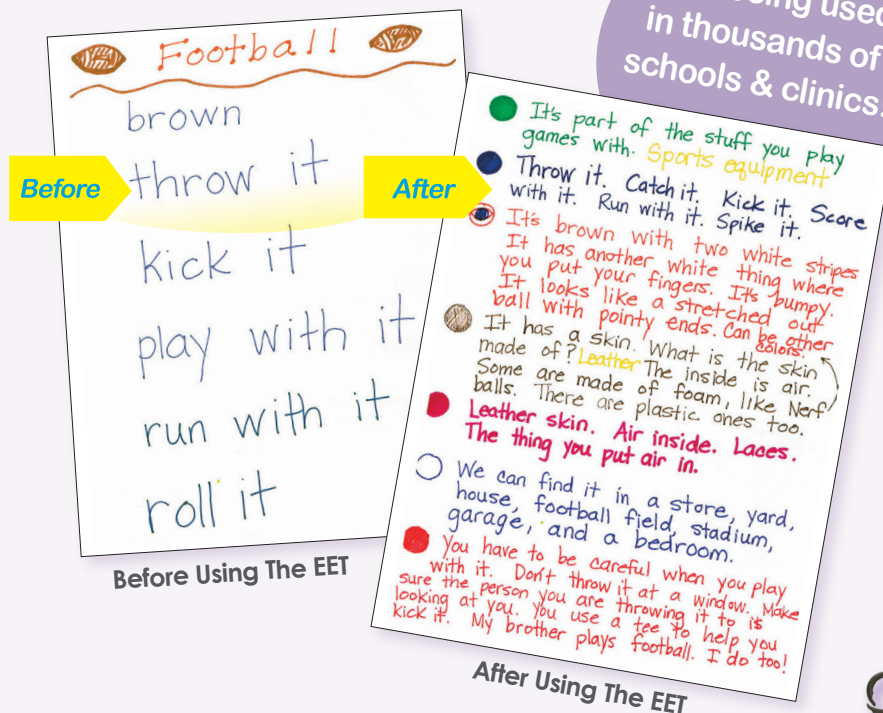 being used
in thousands of
schools & clinics.
Football
brown
throw it
kick it
play with it
run with it
roll it
Before
After
It's part of the stuff you play
games with. Sports equipment
Throw it. Catch it. Kick it. Score
with it. Run with it. Spike it.
It's brown with two white stripes
It has another white thing where
you put your fingers. It's bumpy.
It looks like a stretched out
ball with pointy ends. Can be other
colors.
It has a skin. What is the skin
made of? Leather The inside is air.
Some are made of foam, like Nerf
balls. There are plastic ones too.
Leather skin. Air inside. Laces.
The thing you put air in.
We can find it in a store, yard,
house, football field, stadium,
garage, and a bedroom.
You have to be careful when you play
with it. Don't throw it at a window. Make
sure the person you are throwing it to is
looking at you. You use a tee to help you
kick it. My brother plays football. I do too!
Before Using The EET
After Using The EET